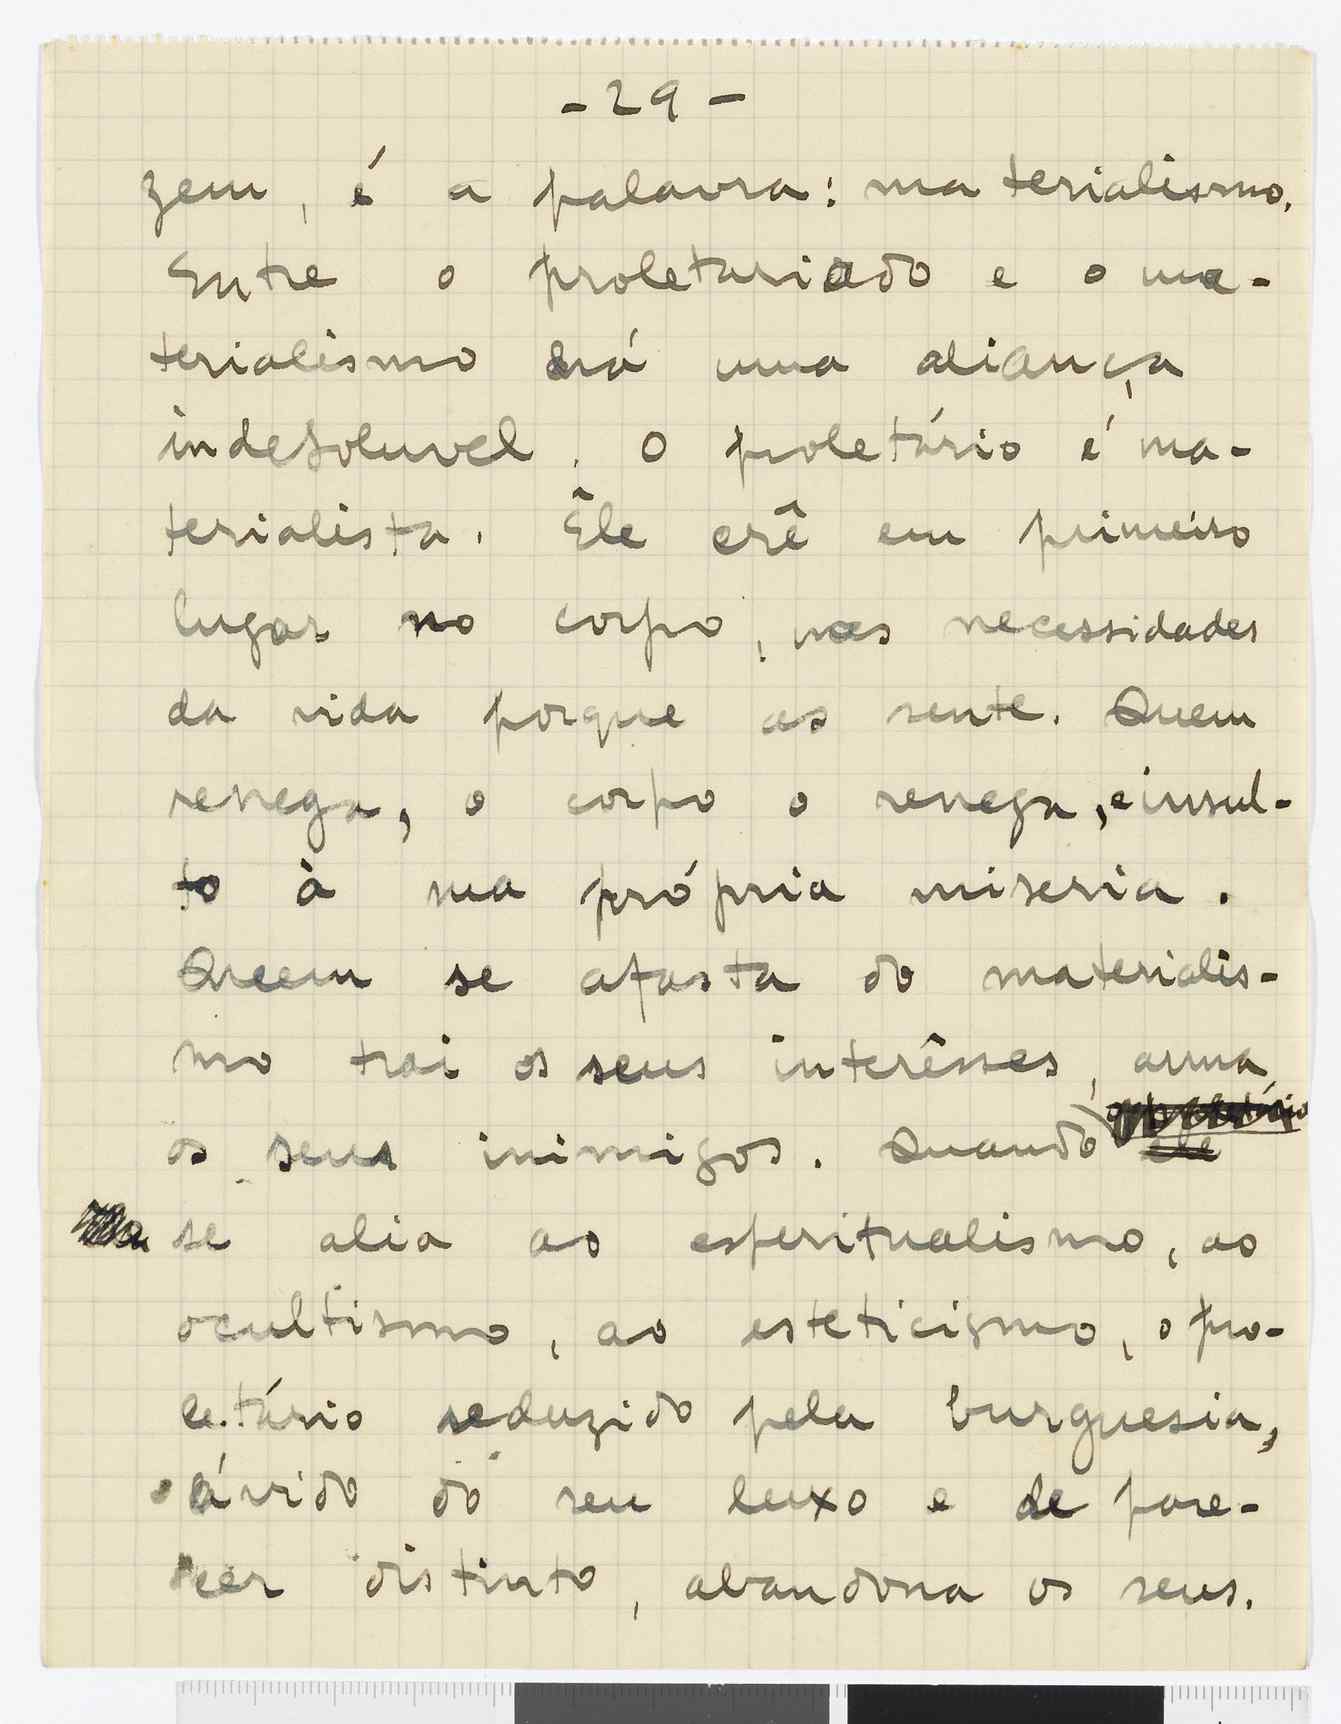 - 29 -
zem, é a palavra: materialismo.
Entre o proletariado e o ma-
terialismo há uma aliança
indesoluvel. O proletário é ma-
terialista. Êle crê em primeiro
lugar no corpo, nas necessidades
da vida porque as sente. Quem
renega, o corpo o renega, e insul-
to à sua própria miseria.
Queem se afasta do materialis-
mo trai os seus interêsses, arma
os seus inimigos. Quando
se alia ao espiritualismo, ao
ocultismo, ao esteticismo, o pro-
letário seduzido pela burguesia,
ávido do seu luxo e de pare-
cer distinto, abandona os seus.